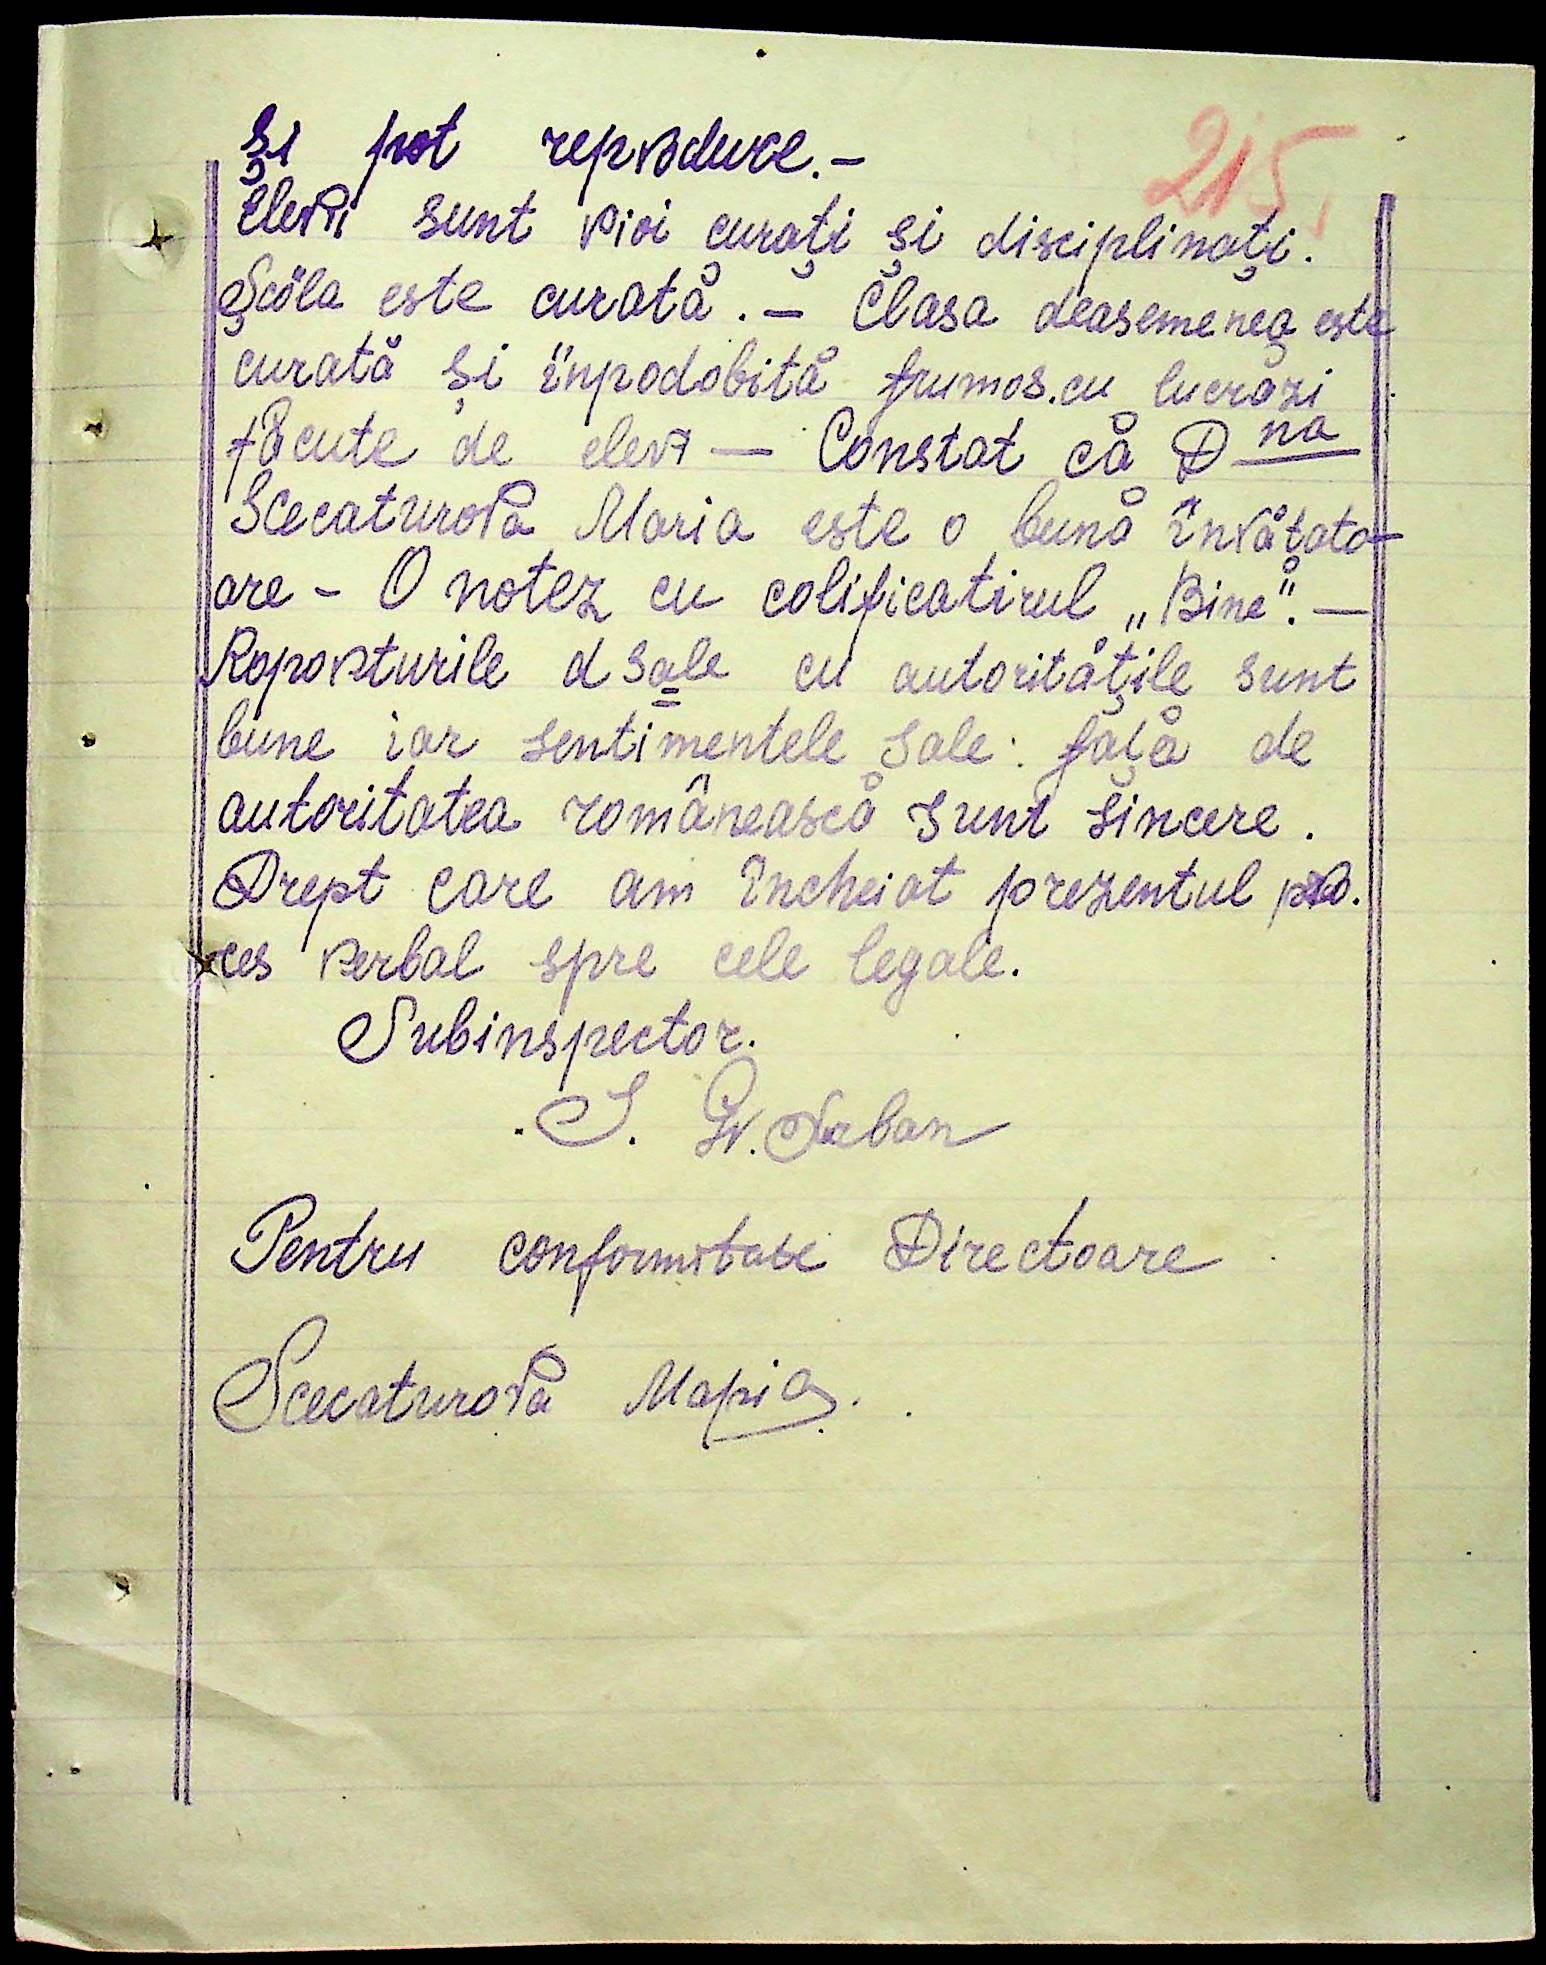 215
și pot reproduce.-
Elevii sunt vioi curați și disciplinați.
Școla este curată. - Clasa deasemenea este
curată și înpodobită frumos.cu lucrări
făcute de elevi — Constat că D na
Scecaturova Maria este o bună învățăto-
are - O notez cu calificativul „Bine". —
Raporturile d sale cu autoritățile sunt
bune iar sentimentele sale față de
autoritatea românească sunt sincere.
Drept care am încheiat prezentul pro.
ces verbal spre cele legale.
Subinspector.
Pentru conformitate Directoare
Scecaturova Maria.